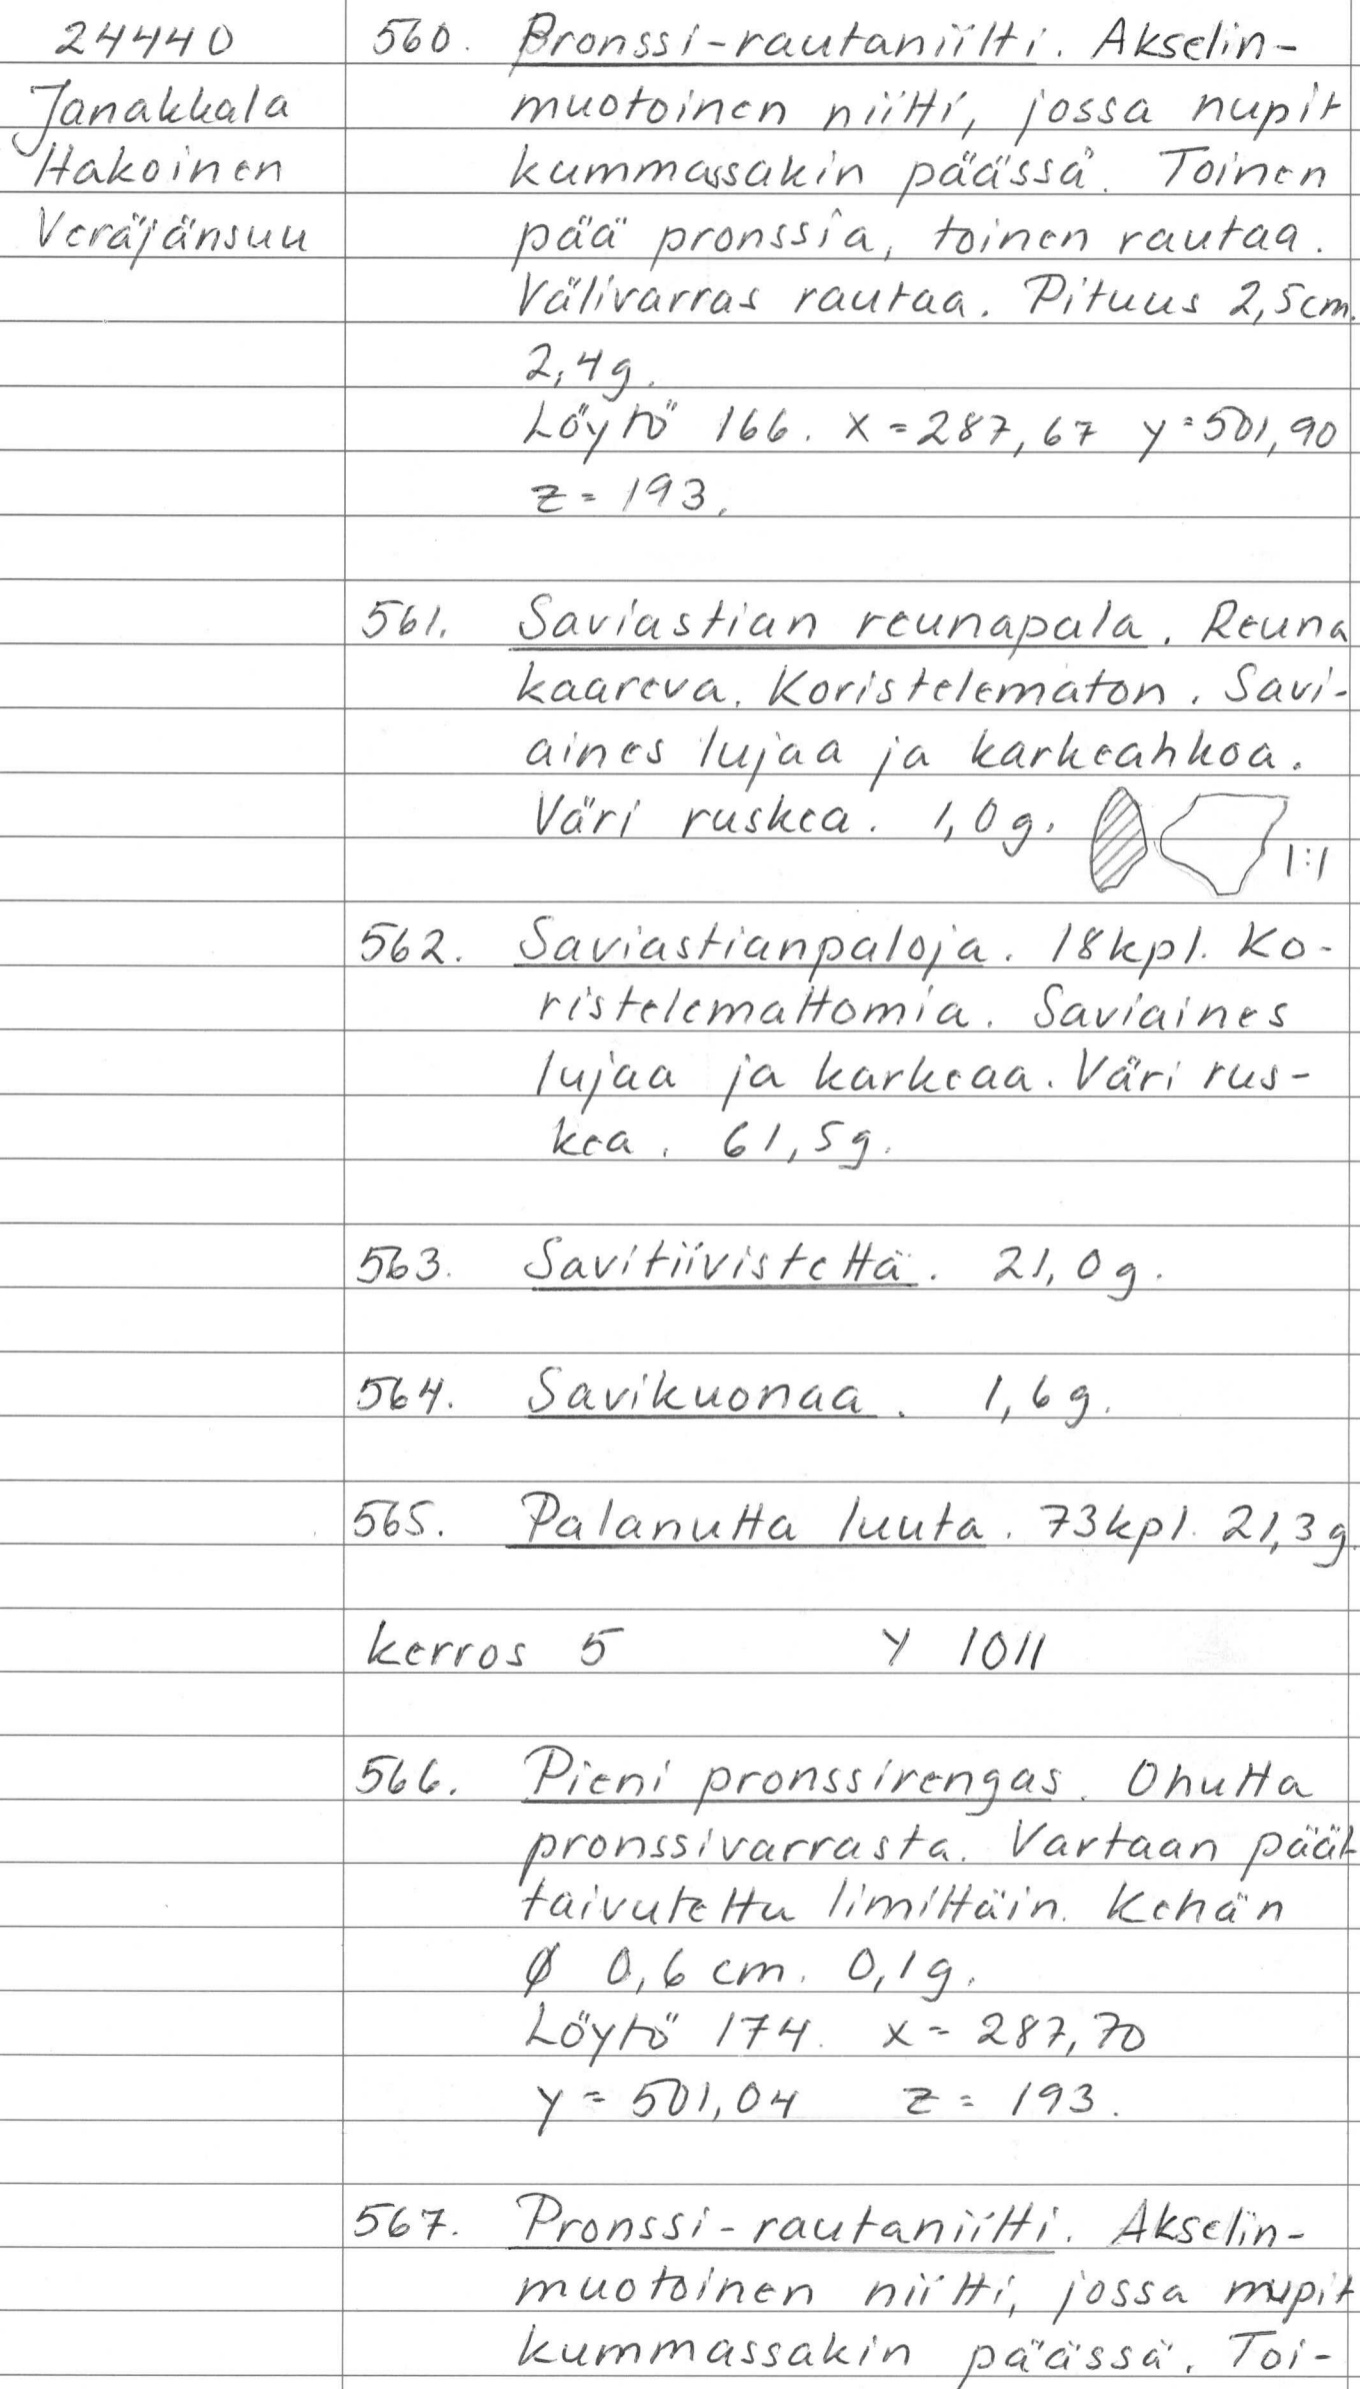 24440
Janakkala
Hakoinen
Veräjänsuu
560. Pronssi-rautaniitti. Akselin-
muotoinen niitti, jossa nupit
kummassakin päässä. Toinen
pää pronssia, toinen rautaa.
Välivarras rautaa. Pituus 2,5cm.
2,4g.
Löytö 166. x=287,67 y=501,90
z=193.
561. Saviastian reunapala. Reuna
kaareva. Koristelematon. Savi-
aines lujaa ja karkeahkoa.
Väri ruskea. 1,0g.
1:1
562. Saviastianpaloja. 18kpl. Ko-
ristelemattomia. Saviaines
lujaa ja karkeaa. Väri rus-
kea. 61,5g.
563. Savitiivistettä. 21,0g.
564. Savikuonaa. 1,6g.
565. Palanutta luuta. 73kpl. 21,3g.
kerros 5 Y 1011
566. Pieni pronssirengas. Ohutta
pronssivarrasta. Vartaan päät
taivutettu limittäin. Kehän
Ø 0,6 cm. 0,1g.
Löytö 174. x=287,70
y=501,04 z=193.
567. Pronssi-rautaniitti. Akselin-
muotoinen niitti, jossa nupit
kummassakin päässä. Toi-